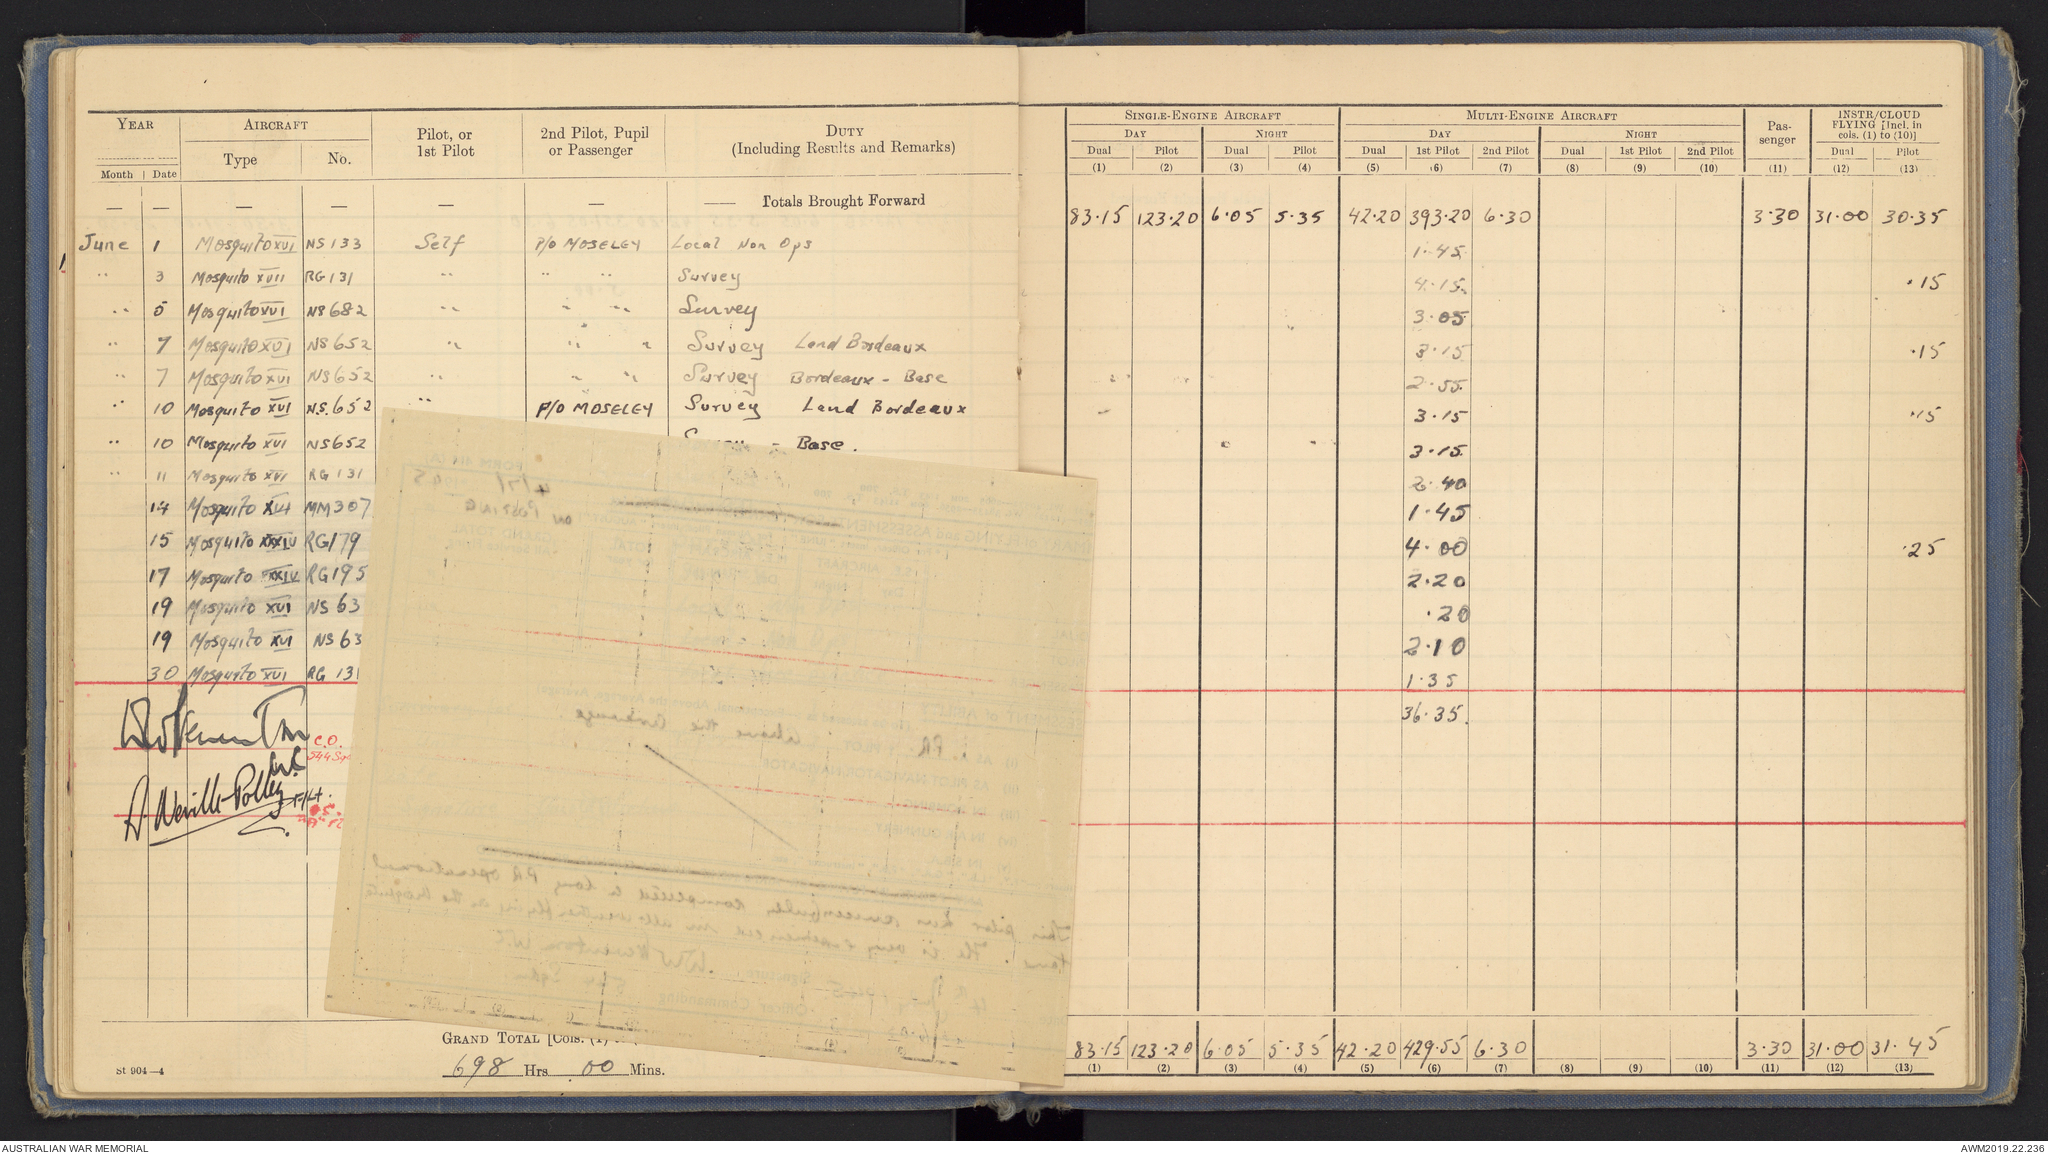 YEAR AIRCRAFT Pilot, or 1st Pilot 2nd Pilot, Pupil or Passenger DUTY (Including Results and Remarks) SINGLE-ENGINE AIRCRAFT MULTI-ENGINE AIRCRAFT Pas- senger INSTR/CLOUD FLYING [Incl. in cols. (1) to (10)]
DAY NIGHT DAY NIGHT
Month Date Type No. Dual Pilot Dual Pilot Dual 1st Pilot 2nd Pilot Dual 1st Pilot 2nd Pilot Dual Pilot
(1) (2) (3) (4) (5) (6) (7) (8) (9) (10) (11) (12) (13)
— — — — — — —— Totals Brought Forward 83.15 123.20 6.05 5.35 42.20 393.20 6.30 3.30 31.00 30.35
June 1 Mosquito XVI NS133 Self P/O MOSELEY Local Non Ops 1.45
" 3 Mosquito XVII RG131 " " " Survey 4.15 .15
" 5 Mosquito XVI NS682 " " " Survey 3.05
" 7 Mosquito XVI NS652 " " " Survey Land Bordeaux 3.15 .15
" 7 Mosquito XVI NS652 " " " Survey Bordeaux - Base 2.55
" 10 Mosquito XVI N.S.652 " P/O MOSELEY Survey Land Bordeaux 3.15 .15
" 10 Mosquito XVI NS652 - Base. 3.15
" 11 Mosquito XVI RG131 2.40
14 Mosquito XVI MM307 1.45
15 Mosquito XXXIV RG179 4.00 .25
17 Mosquito XXXIV RG195 2.20
19 Mosquito XVI NS63 .20
19 Mosquito XVI NS63 2.10
30 Mosquito XVI RG131 1.35
36.35.
C.O.
544 Sq
A. Neville Polley F/Lt.
FORM 414 (A)
ON POSTING
(i) AS P.R. PILOT above the average.
(ii) AS PILOT-NAVIGATOR/NAVIGATOR
(iii) IN BOMBING
(iv) IN AIR GUNNERY
This pilot has successfully completed a long PR operational
tour. He is very experienced in all weather flying in the Mosquito
4th July 1945. Signature
Officer Commanding 544 Sqdn
GRAND TOTAL [Cols. (1)
698 Hrs 00 Mins.
83.15 123.20 6.05 5.35 42.20 429.55 6.30 3.30 31.00 31.45
(1) (2) (3) (4) (5) (6) (7) (8) (9) (10) (11) (12) (13)
St 904—4
AUSTRALIAN WAR MEMORIAL AWM2019.22.236